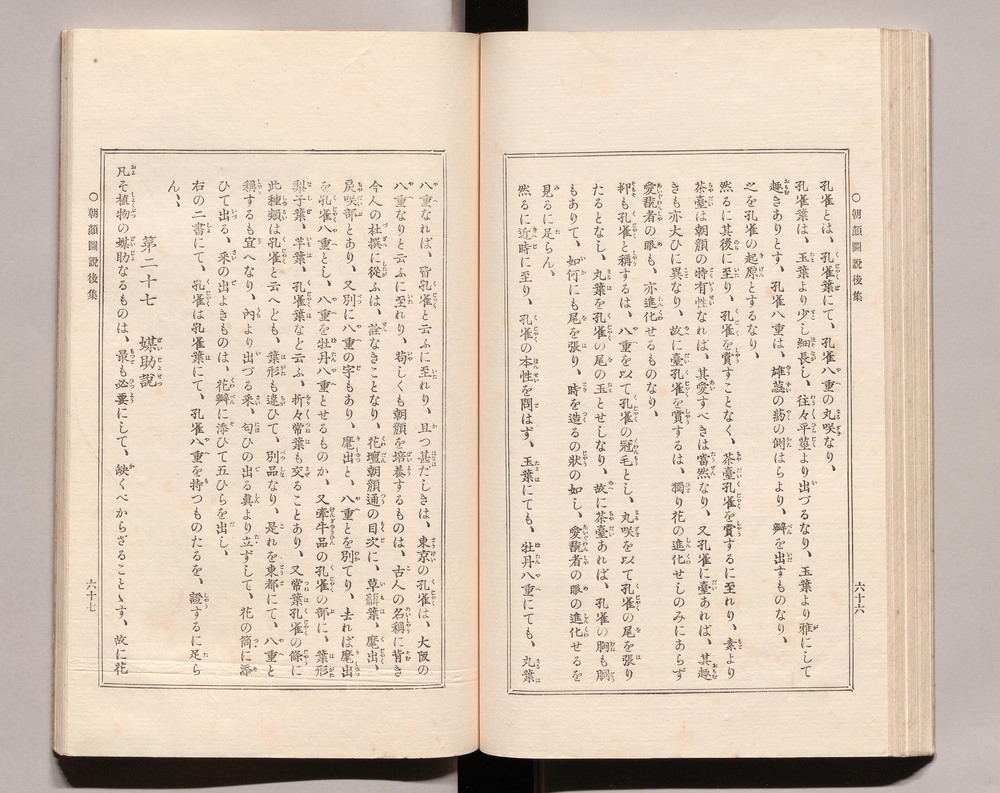 ○朝顏圖說後集
六十六
孔雀とは、孔雀葉にて、孔雀八重の丸咲なり、
孔雀葉は、玉葉より少し細長し、往々平莖より出づるなり、玉葉より雅にして
趣きありとす、孔雀八重は、雄蘂の葯の側はらより、瓣を出すものなり、
之を孔雀の起原とするなり、
然るに其後に至り、孔雀を賞すことなく、茶臺孔雀を賞するに至れり、素より
茶臺は朝顏の特有性なれば、其愛すべきは當然なり、又孔雀に臺あれば、其趣
きも亦大ひに異なり、故に臺孔雀を賞するは、獨り花の進化せしのみにあらず
愛翫者の眼も、亦進化せるものなり、
抑も孔雀と稱するは、八重を以て孔雀の冠毛とし、丸咲を以て孔雀の尾を張り
たるとなし、丸葉を孔雀の尾の玉とせしなり、故に茶臺あれば、孔雀の胸も胴
もありて、如何にも尾を張り、時を造るの狀の如し、愛翫者の眼の進化せるを
見るに足らん、
然るに近時に至り、孔雀の本性を問はず、玉葉にても、牡丹八重にても、丸葉
八重なれば、皆孔雀と云ふに至れり、且つ甚だしきは、東京の孔雀は、大阪の
八重なりと云ふに至れり、苟しくも朝顏を培養するものは、古人の名稱に背き
今人の杜撰に從ふは、詮なきことなり、花壇朝顏通の目次に、草㼐葉、麾出、
戾咲部とあり、又別に八重の字もあり、麾出と、八重とを別てり、去れば麾出
を孔雀八重とし、八重を牡丹八重とせるものか、又牽牛品の孔雀の部に、葉形
梨子葉、芋葉、孔雀葉などと云ふ、折々常葉も交ることあり、又常葉孔雀の條に
此種類は孔雀と云へども、葉形も違ひて、別品なり、是れを東都にて、八重と
稱するも宜へなり、內より出づる釆、匂ひの出る眞より立ずして、花の筒に添
ひて出る、釆の出よきものは、花瓣に添ひて五ひらを出し、
右の二書にて、孔雀は孔雀葉にて、孔雀八重を持つものたるを、證するに足ら
ん、
第二十七　媒助說
凡そ植物の媒助なるものは、最も必要にして、缺くべからざることゝす、故に花
○朝顏圖說後集
六十七